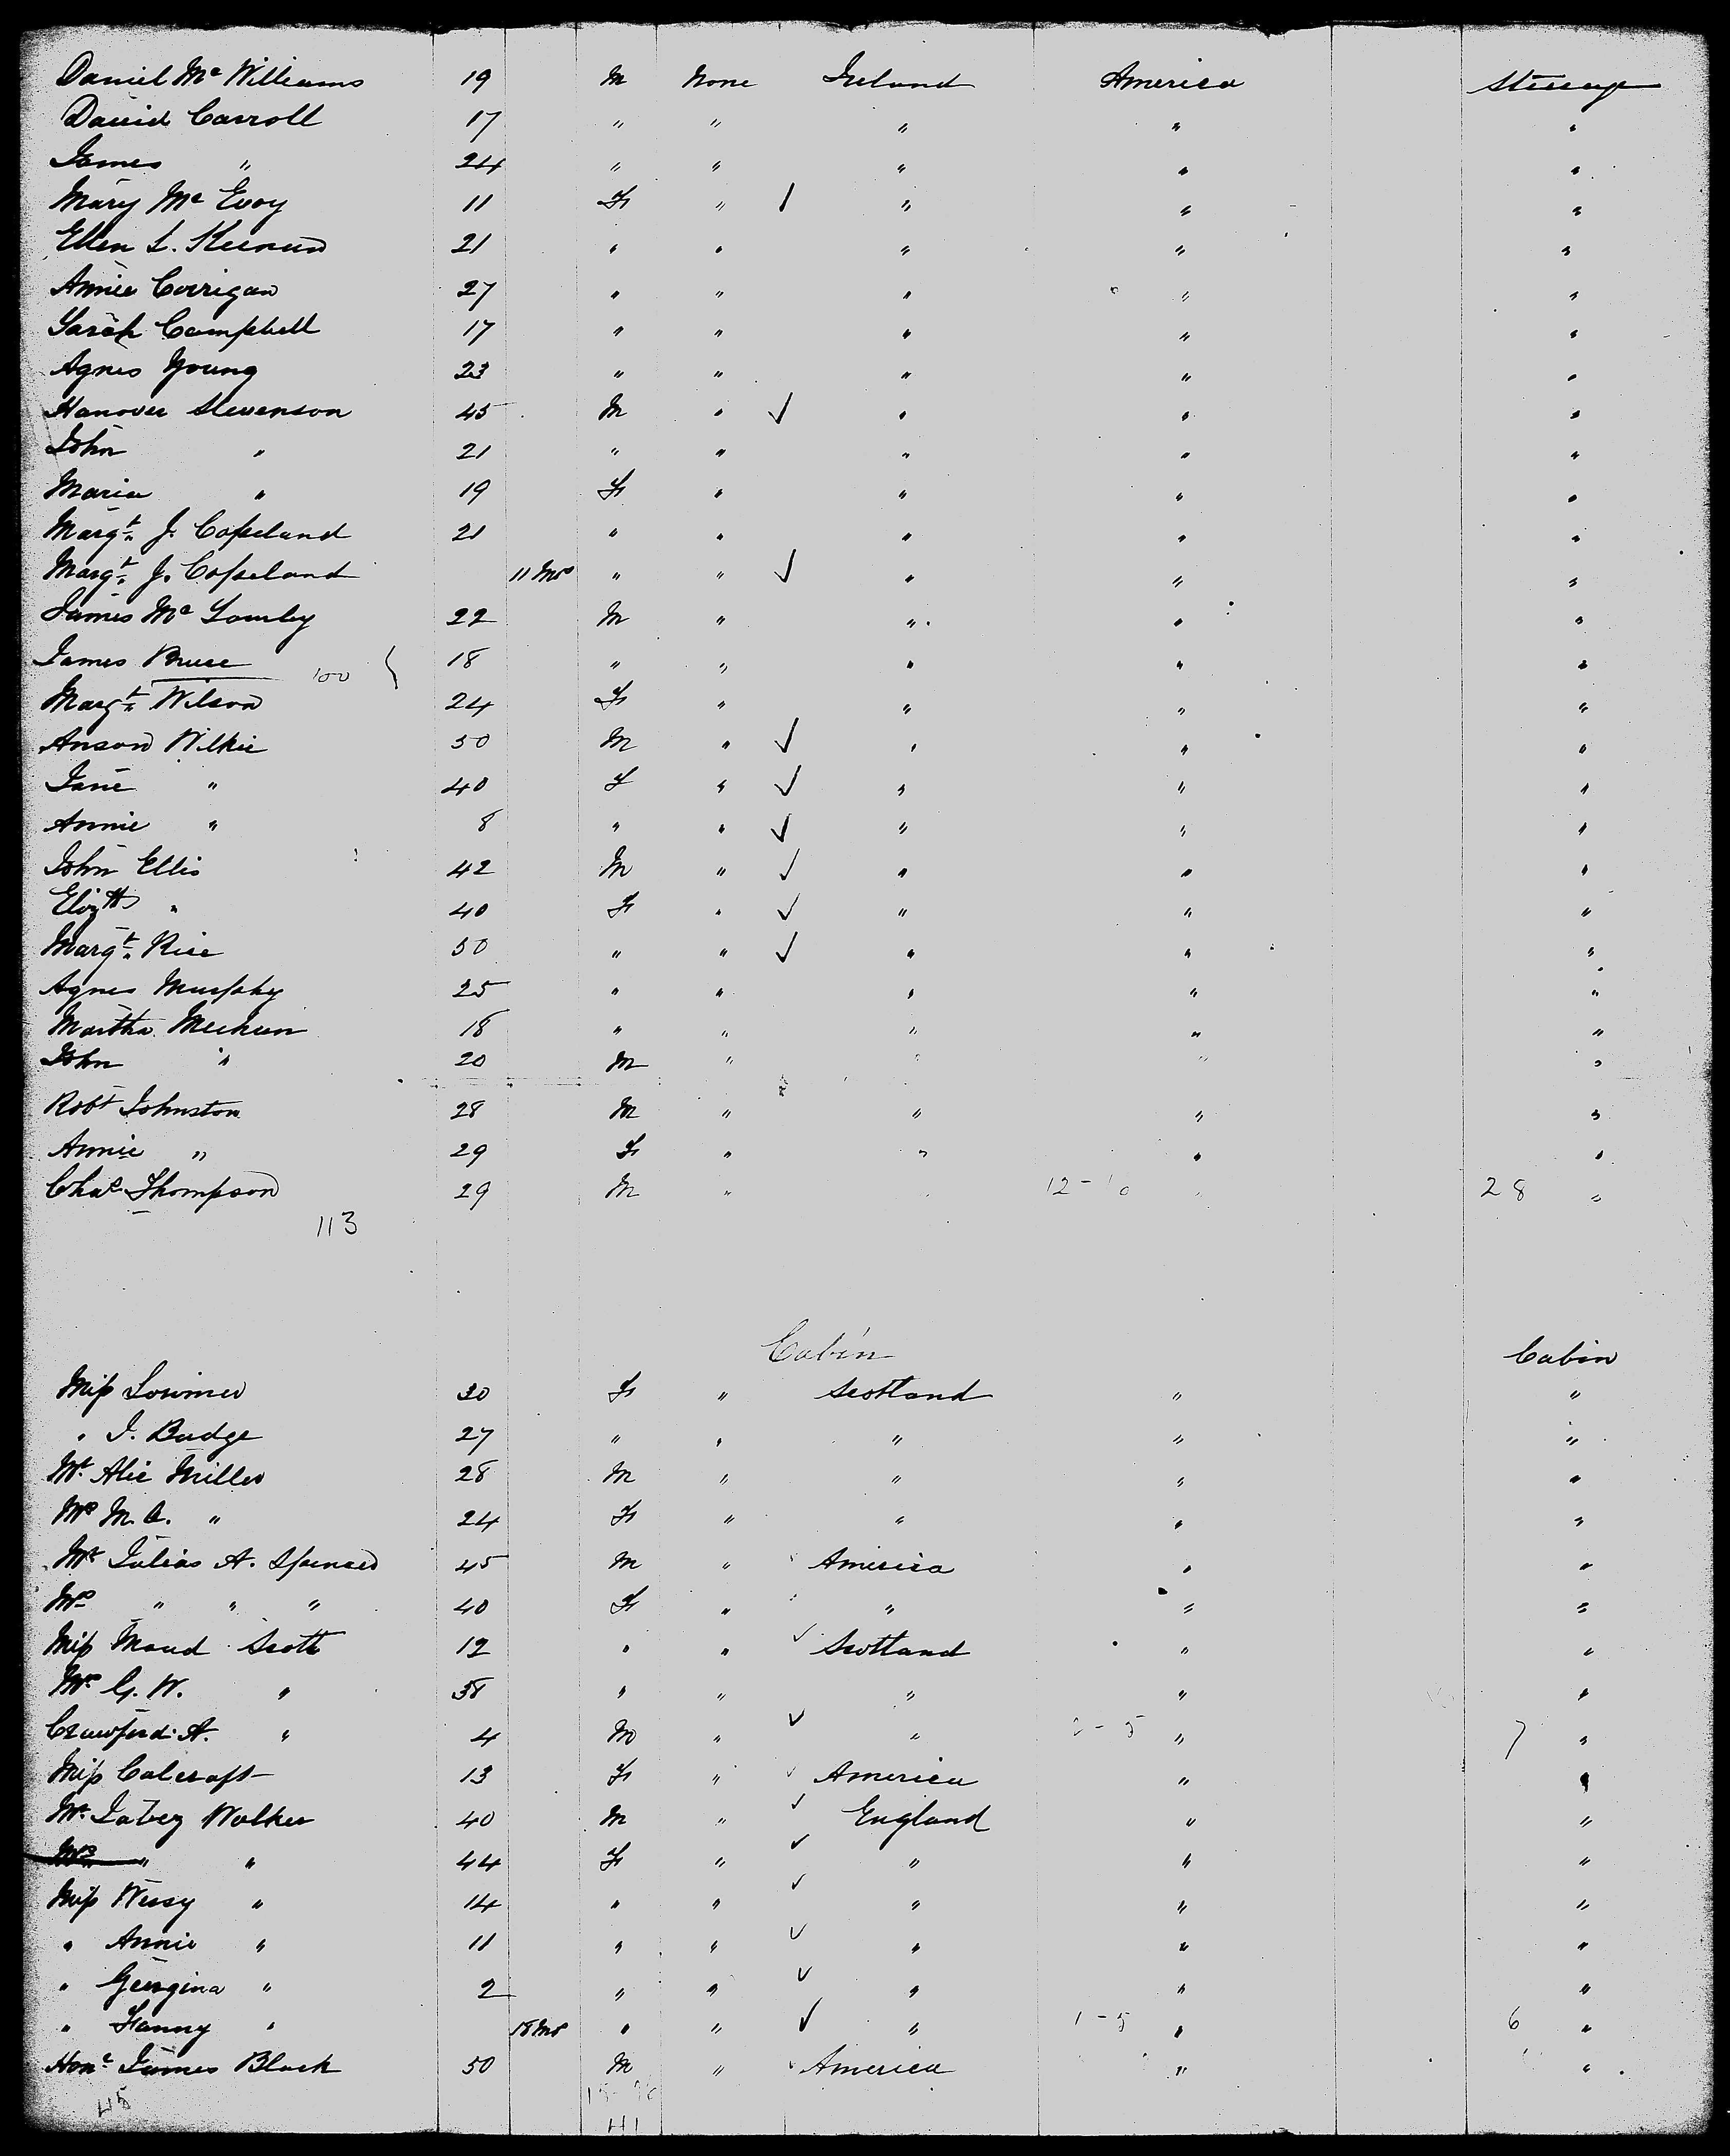 Daniel Mc Williams 19 M None Ireland America Steerage
David Carroll 17 " " " " "
James " 24 " " " " "
Mary Mc Evoy 11 F " " " "
Ellen L. Keenan 21 " " " " "
Annie Corrigan 27 " " " " "
Sarah Campbell 17 " " " " "
Agnes Young 23 " " " " "
Hanover Stevenson 45 M " " " "
John " 21 " " " " "
Maria " 19 F " " " "
Margt. J. Copeland 21 " " " " "
Margt. J. Copeland 11 Mos " " " " "
James Mc 22 M " " " "
James Bruce 100 18 " " " " "
Margt. Wilson 24 F " " " "
Anson Wilkie 50 M " " " "
Jane " 40 F " " " "
Annie " 8 " " " " "
John Ellis 42 M " " " "
Elizth " 40 F " " " "
Margt. Rice 50 " " " " "
Agnes Murphy 25 " " " " "
Martha Meehan 18 " " " " "
John " 20 M " " " "
Robt Johnston 28 M " " " "
Annie " 29 F " " " "
Chas. Thompson 29 M " " 12-10 " 28 "
113
Cabin Cabin
Miss Lorimer 30 F " Scotland " "
" J. Budge 27 " " " " "
Mr. Alic Miller 28 M " " " "
Mrs M. A. " 24 F " " " "
Mr Julias A. Spencer 45 M " America " "
Mrs " " " 40 F " " " "
Miss Maud Scott 12 " " Scotland " "
Mrs G. W. " 38 " " " " "
Crawford A. " 4 M " " 2-5 " 7 "
Miss Calcraft 13 F " America " "
Mr. Jabez Walker 40 M " England " "
Mrs " " 44 F " " " "
Miss Wessy " 14 " " " " "
" Annie " 11 " " " " "
" Georgina " 2 " " " " "
" Fanny " 18 Mos " " " 1-5 " 6 "
Hone James Black 50 M " America " "
45
41